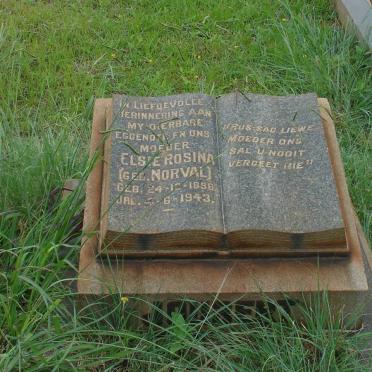 IN LIEFDEVOLLE
HERINNERING AAN
MY DIERBARE
EGGENOTE EN ONS
MOEDER
ELSIE ROSINA
(GEB. NORVAL)
GEB. 24-12-1898
6-1943.
"RUS SAG LIEWE
MOEDER ONS
SAL U NOOIT
VERGEET NIE"